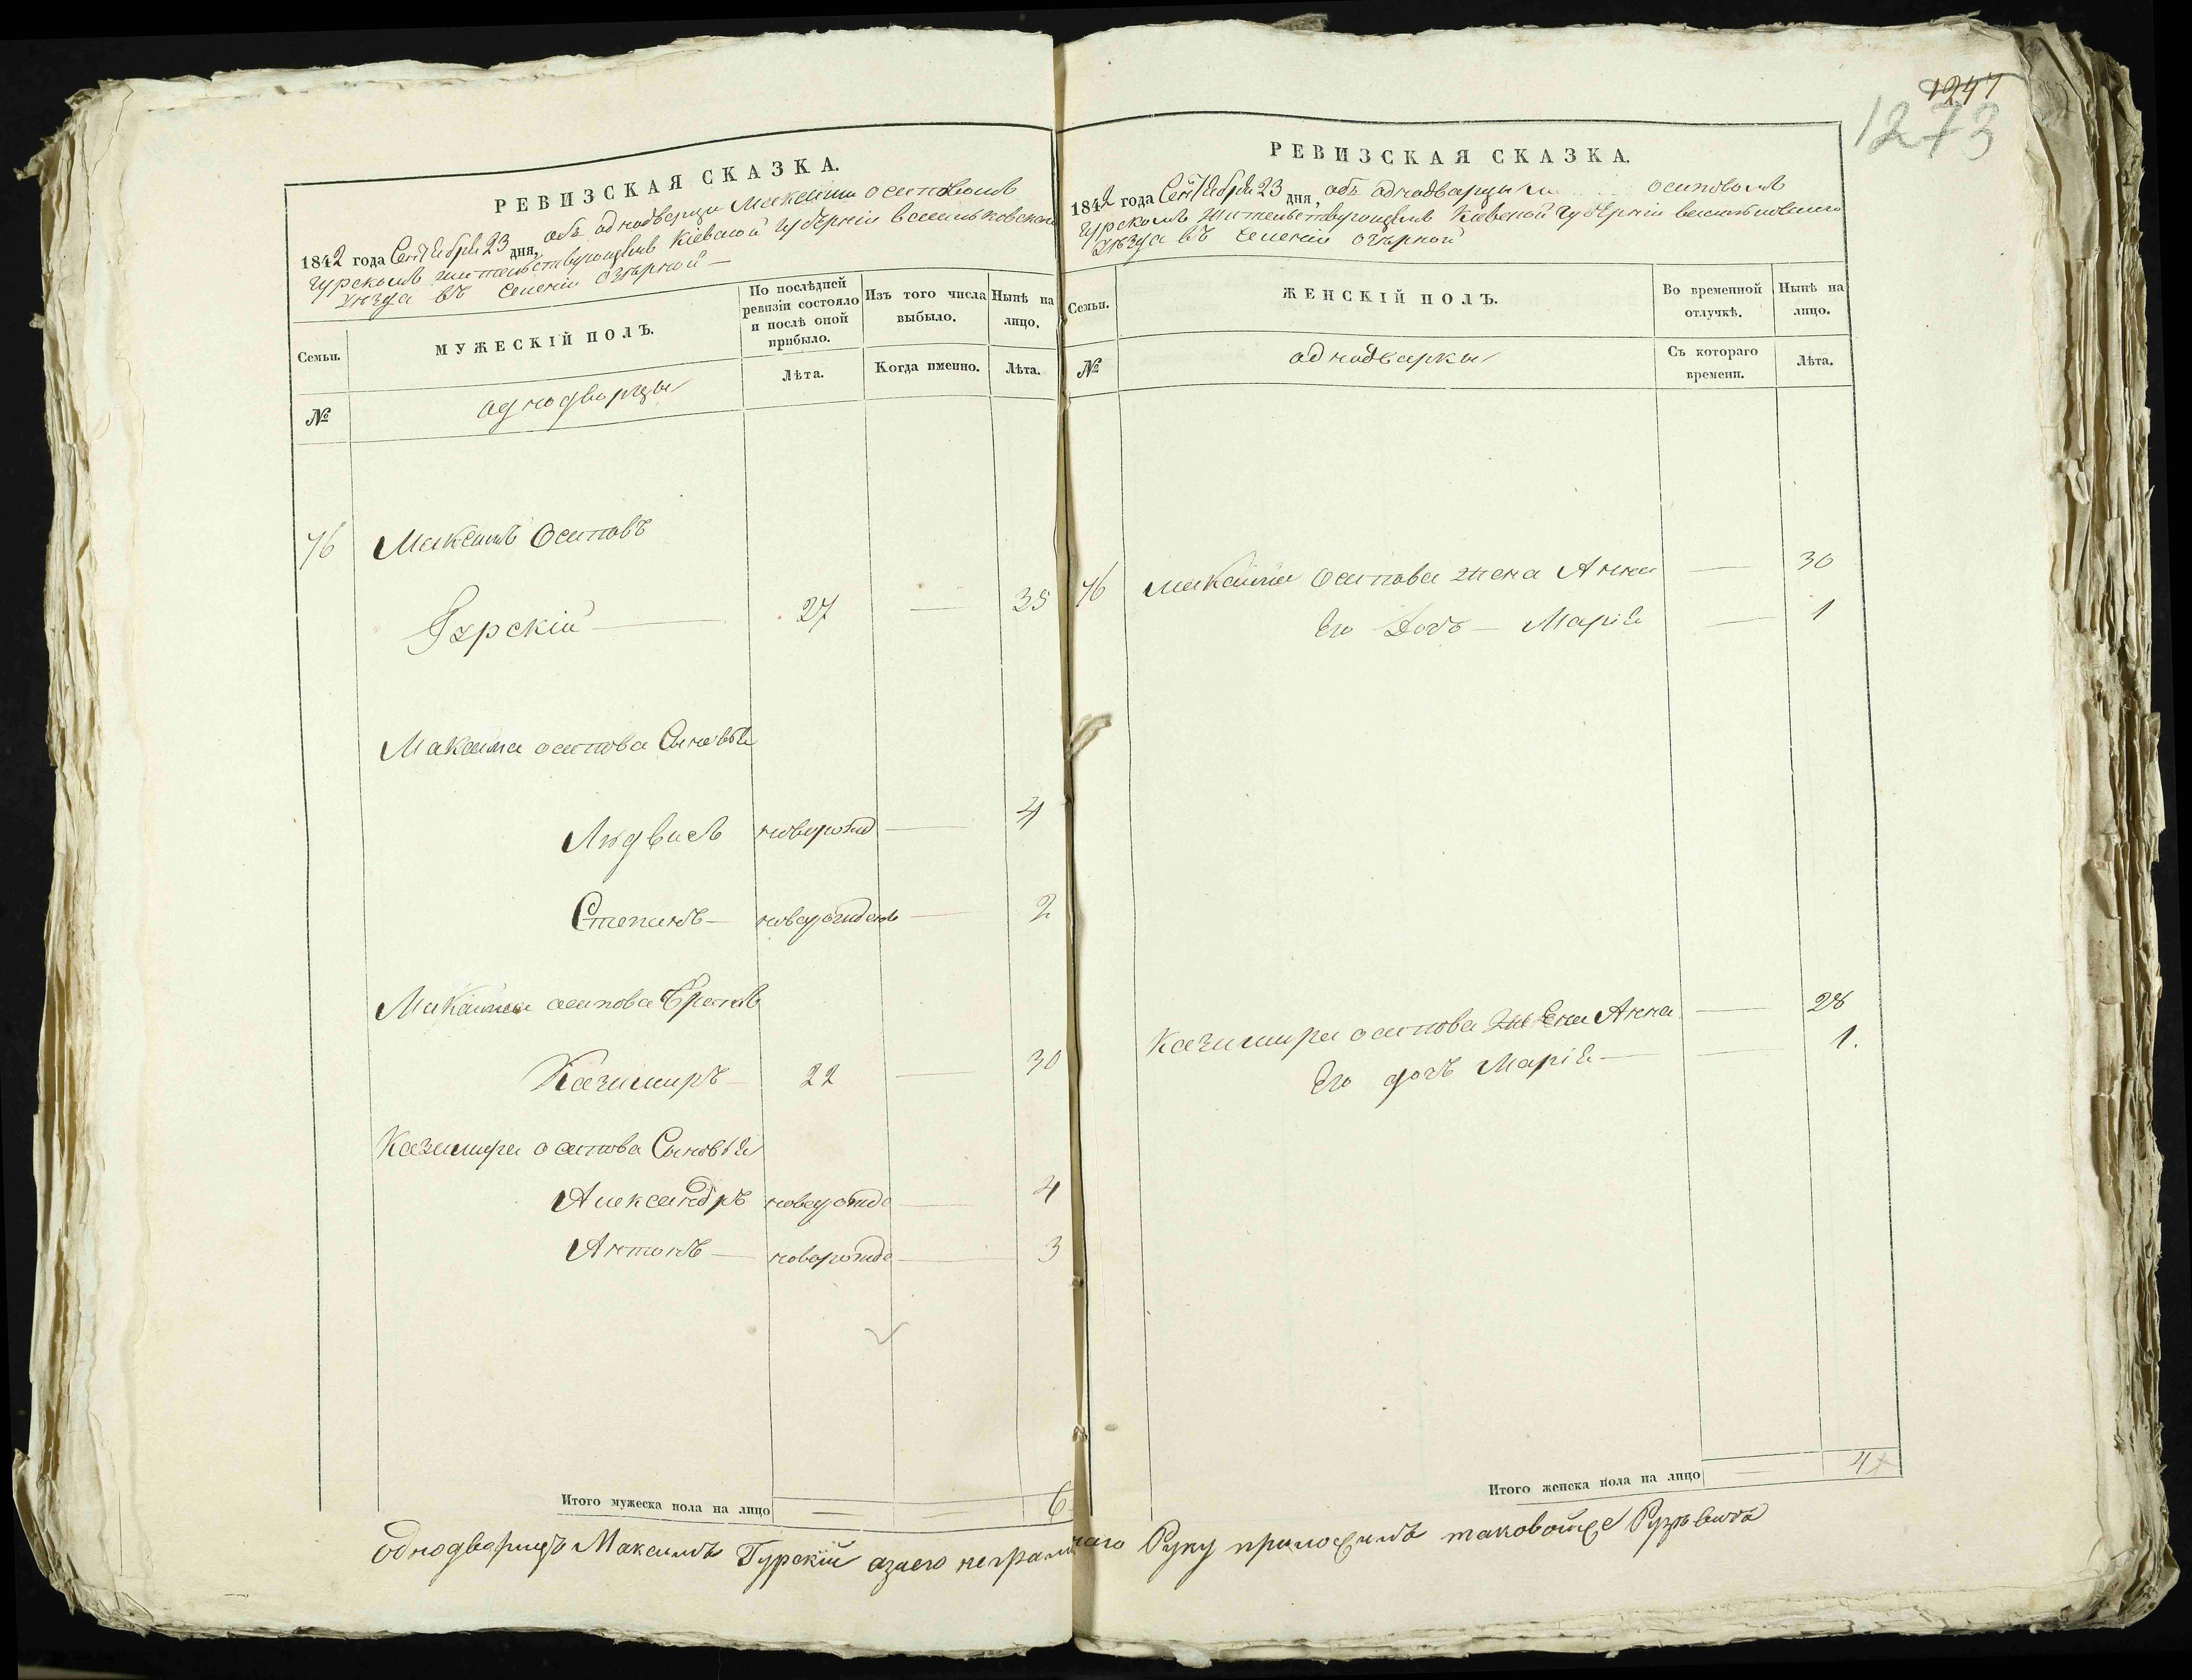 1247
1273
РЕВИЗСКАЯ СКАЗКА.
1842 года Сентебря 23 дня, объ однодворци Максими осиповомъ
Гурскомъ жительствующемъ Кіевской губерніи василковскаго
уезда въ селеніи озѣрной —
Семьи.
МУЖЕСКІЙ ПОЛЪ.
По послѣдней ревизіи состояло и послѣ оной прибыло.
Изъ того числа выбыло.
Нынѣ на лицо.
№
однодворцы
Лѣта.
Когда именно.
Лѣта.
76 Максимъ Осиповъ
Гурскій — 27 — 35
Максима осипова Сыновья
Людвисъ новорожд — 4
Степанъ — новорожденъ — 2
Максима осипова братъ
Казимиръ — 22 — 30
Казимира осипова Сыновья
Александръ новорожде — 4
Антонъ — новорожде — 3
Итого мужеска пола на лицо = 6
РЕВИЗСКАЯ СКАЗКА.
1842 года Сентебря 23 дня, объ однодворцы осиповомъ
Гурскомъ жительствующемъ Кіевской губерніи васильковскаго
уѣзда въ селеніи озѣрной
Семьи.
ЖЕНСКІЙ ПОЛЪ.
Во временной отлучкѣ.
Нынѣ на лицо.
№
аднодварки
Съ котораго времени.
Лѣта.
76 Максима осипова жена Анна — 30
Его Дочъ — Марія — 1
Казимира осипова жена Анна — 28
Его дочъ Марія — — 1.
Итого женска пола на лицо = 4
Однодворецъ Максимъ Гурскій азаего неграмотнаго Руку приложилъ таковойже